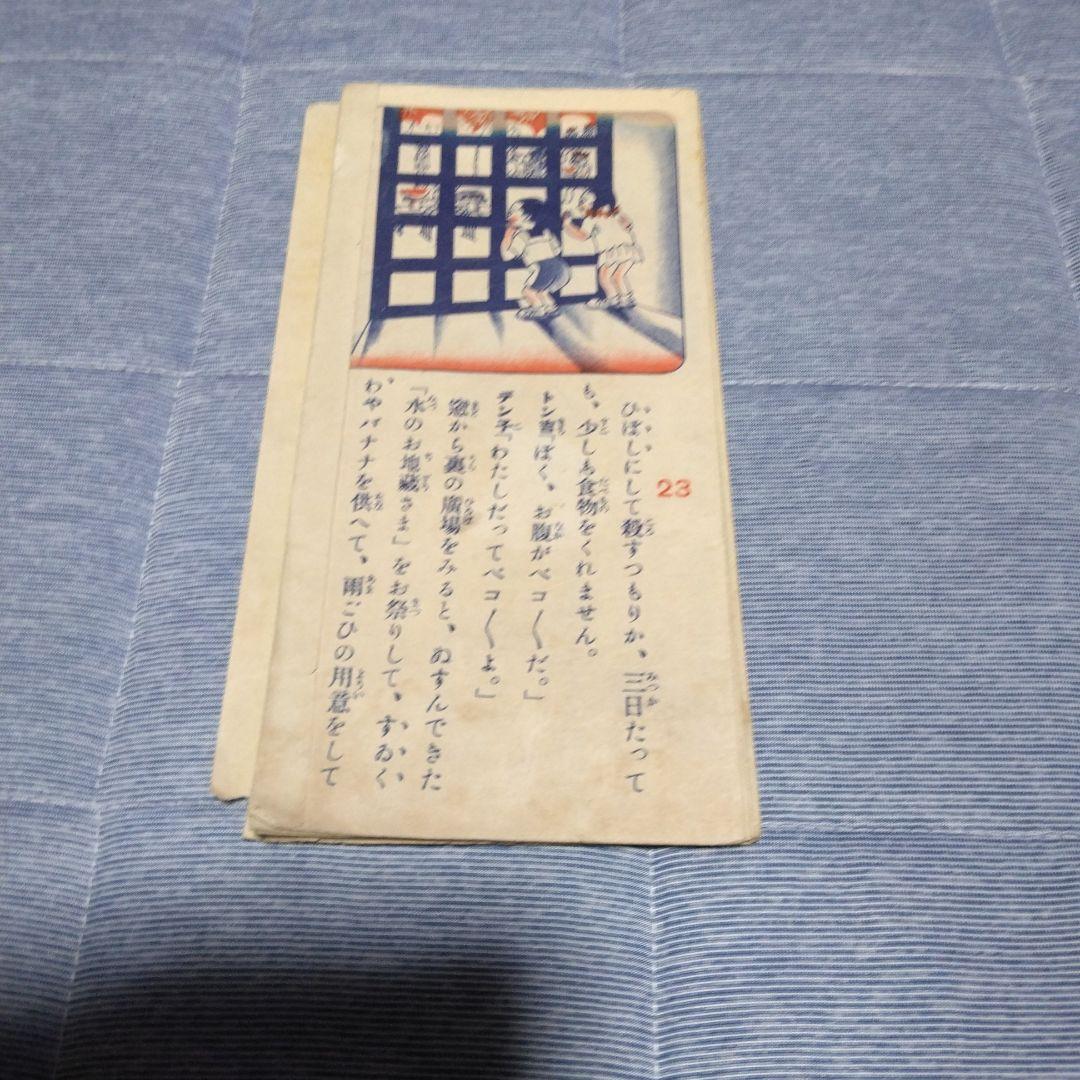 23
ひぼしにして殺すつもりか、三日たって
も、少しも食物をくれません。
トン吉「ぼく、お腹がペコ〱だ。」
デン子「わたしだってペコ〱よ。」
窓から裏の廣場をみると、ぬすんできた
「水のお地蔵さま」をお祭りして、すゐく
わやバナナを供へて、雨ごひの用意をして